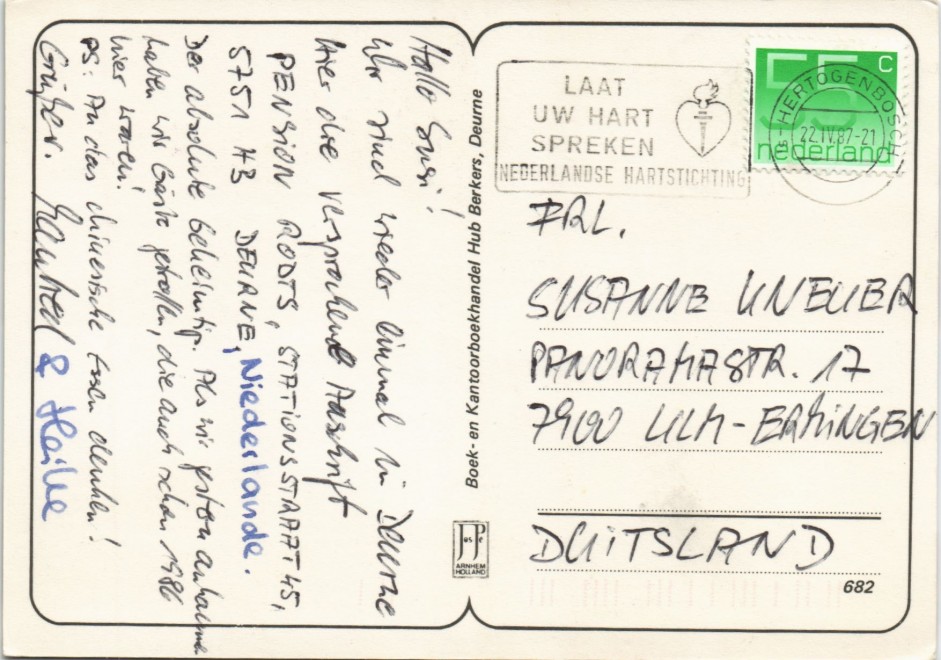 Hallo Susi!
Wir sind wieder einmal in Deurne
Hier die versprochene Anschrift
PENSION RODTS, STATIONSSTRAAT 45,
5751 HB DEURNE, Niederlande.
Der absolute Geheimtip. Als wir gestern ankamen
haben wir Gäste getroffen, die auch schon 1986
hier waren!
PS: An das chinesische Essen denken!
Grüße. & Heike
Boek- en Kantoorboekhandel Hub Berkers, Deurne
JosPé
ARNHEM
HOLLAND
LAAT
UW HART
SPREKEN
NEDERLANDSE HARTSTICHTING
55 c
nederland
'S-HERTOGENBOSCH
22.IV.87-21
FRL.
SUSANNE
PANORAMASTR. 17
7900 ULM-ERMINGEN
DUITSLAND
682